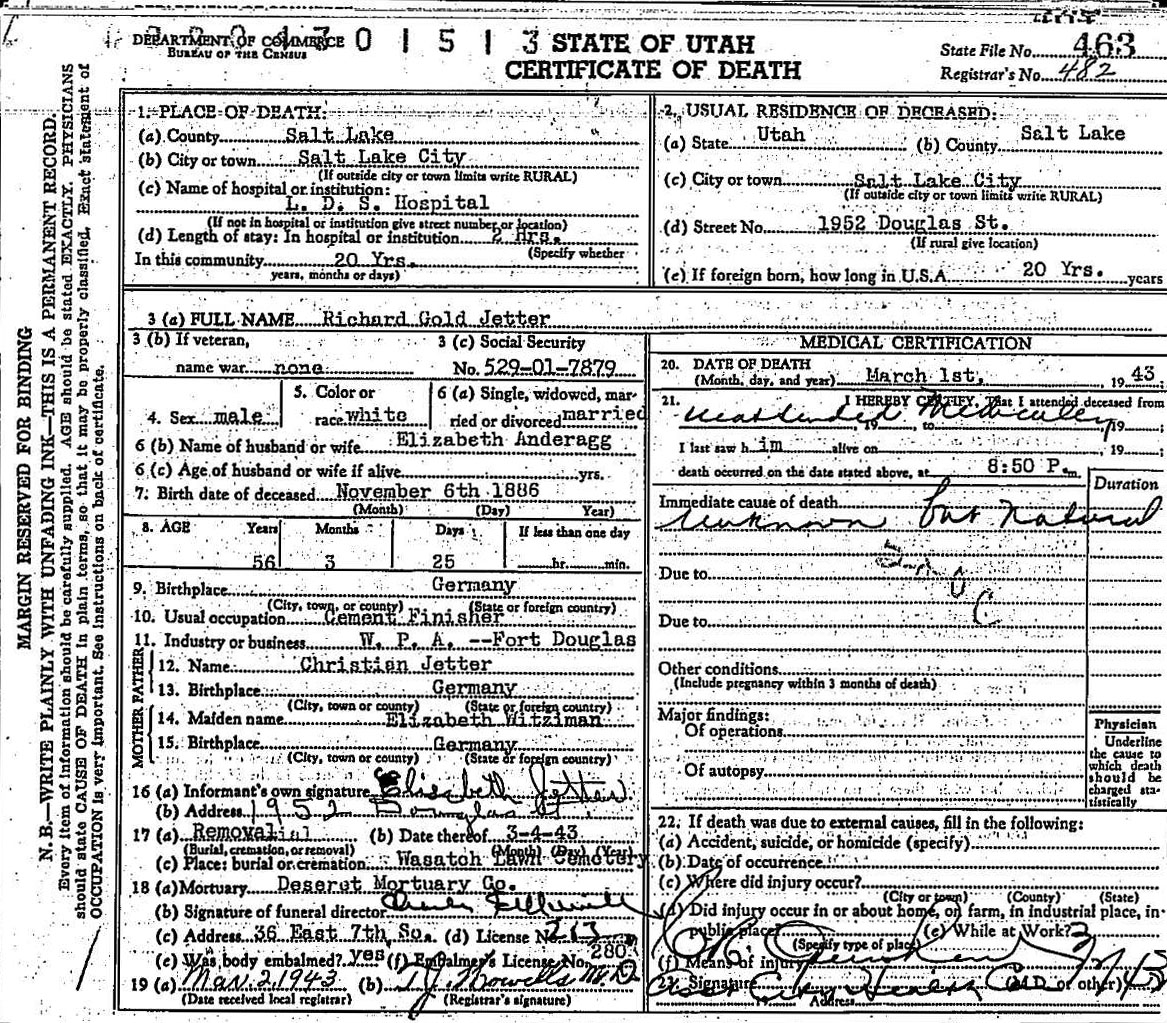 DEPARTMENT OF COMMERCE
BUREAU OF THE CENSUS
0 1 5 1 3
STATE OF UTAH
CERTIFICATE OF DEATH
State File No. 463
Registrar's No. 482
MARGIN RESERVED FOR BINDING
N. B.—WRITE PLAINLY WITH UNFADING INK—THIS IS A PERMANENT RECORD.
Every item of information should be carefully supplied. AGE should be stated EXACTLY. PHYSICIANS
should state CAUSE OF DEATH in plain terms, so that it may be properly classified. Exact statement of
OCCUPATION is very important. See instructions on back of certificate.
1. PLACE OF DEATH:
(a) County Salt Lake
(b) City or town Salt Lake City
(If outside city or town limits write RURAL)
(c) Name of hospital or institution:
L. D. S. Hospital
(If not in hospital or institution give street number or location)
(d) Length of stay: In hospital or institution 2 Hrs.
(Specify whether
In this community 20 Yrs.
years, months or days)
2. USUAL RESIDENCE OF DECEASED:
(a) State Utah (b) County Salt Lake
(c) City or town Salt Lake City
(If outside city or town limits write RURAL)
(d) Street No. 1952 Douglas St.
(If rural give location)
(e) If foreign born, how long in U.S.A. 20 Yrs. years
3 (a) FULL NAME Richard Gold Jetter
3 (b) If veteran,
name war none
3 (c) Social Security
No. 529-01-7879
4. Sex male
5. Color or
race white
6 (a) Single, widowed, mar-
ried or divorced married
6 (b) Name of husband or wife Elizabeth Anderagg
6 (c) Age of husband or wife if alive yrs.
7. Birth date of deceased November 6th 1886
(Month) (Day) Year)
8. AGE Years Months Days If less than one day
56 3 25 hr. min.
9. Birthplace Germany
(City, town, or county) (State or foreign country)
10. Usual occupation Cement Finisher
11. Industry or business W. P. A. --Fort Douglas
FATHER
12. Name Christian Jetter
13. Birthplace Germany
(City, town or county) (State or foreign country)
MOTHER
14. Maiden name Elizabeth Witziman
15. Birthplace Germany
(City, town or county) (State or foreign country)
16 (a) Informant's own signature Elizabeth Jetter
(b) Address 1952 Douglas St.
17 (a) Removal (b) Date thereof 3-4-43
(Burial, cremation, or removal) (Month) (Day) (Year)
(c) Place: burial or cremation Wasatch Lawn Cemetery
18 (a) Mortuary Deseret Mortuary Co.
(b) Signature of funeral director
(c) Address 36 East 7th So. (d) License No. 213
(e) Was body embalmed? yes (f) Embalmer's License No. 280
19 (a) Mar. 2, 1943 (b) T J Howells M.D.
(Date received local registrar) (Registrar's signature)
MEDICAL CERTIFICATION
20. DATE OF DEATH
(Month, day, and year) March 1st, 19 43
21. I HEREBY CERTIFY, That I attended deceased from
unattended Medically
, 19 to 19 ;
I last saw h im alive on , 19 ;
death occurred on the date stated above, at 8:50 P. m.
Duration
Immediate cause of death
Unknown but Natural
Due to
Due to
Other conditions
(Include pregnancy within 3 months of death)
Major findings:
Of operations
Of autopsy
Physician
Underline
the cause to
which death
should be
charged sta-
tistically
22. If death was due to external causes, fill in the following:
(a) Accident, suicide, or homicide (specify)
(b) Date of occurrence
(c) Where did injury occur?
(City or town) (County) (State)
(d) Did injury occur in or about home, on farm, in industrial place, in
public place? (e) While at Work?
(Specify type of place)
(f) Means of injury
23. Signature (M.D. or other)
Address